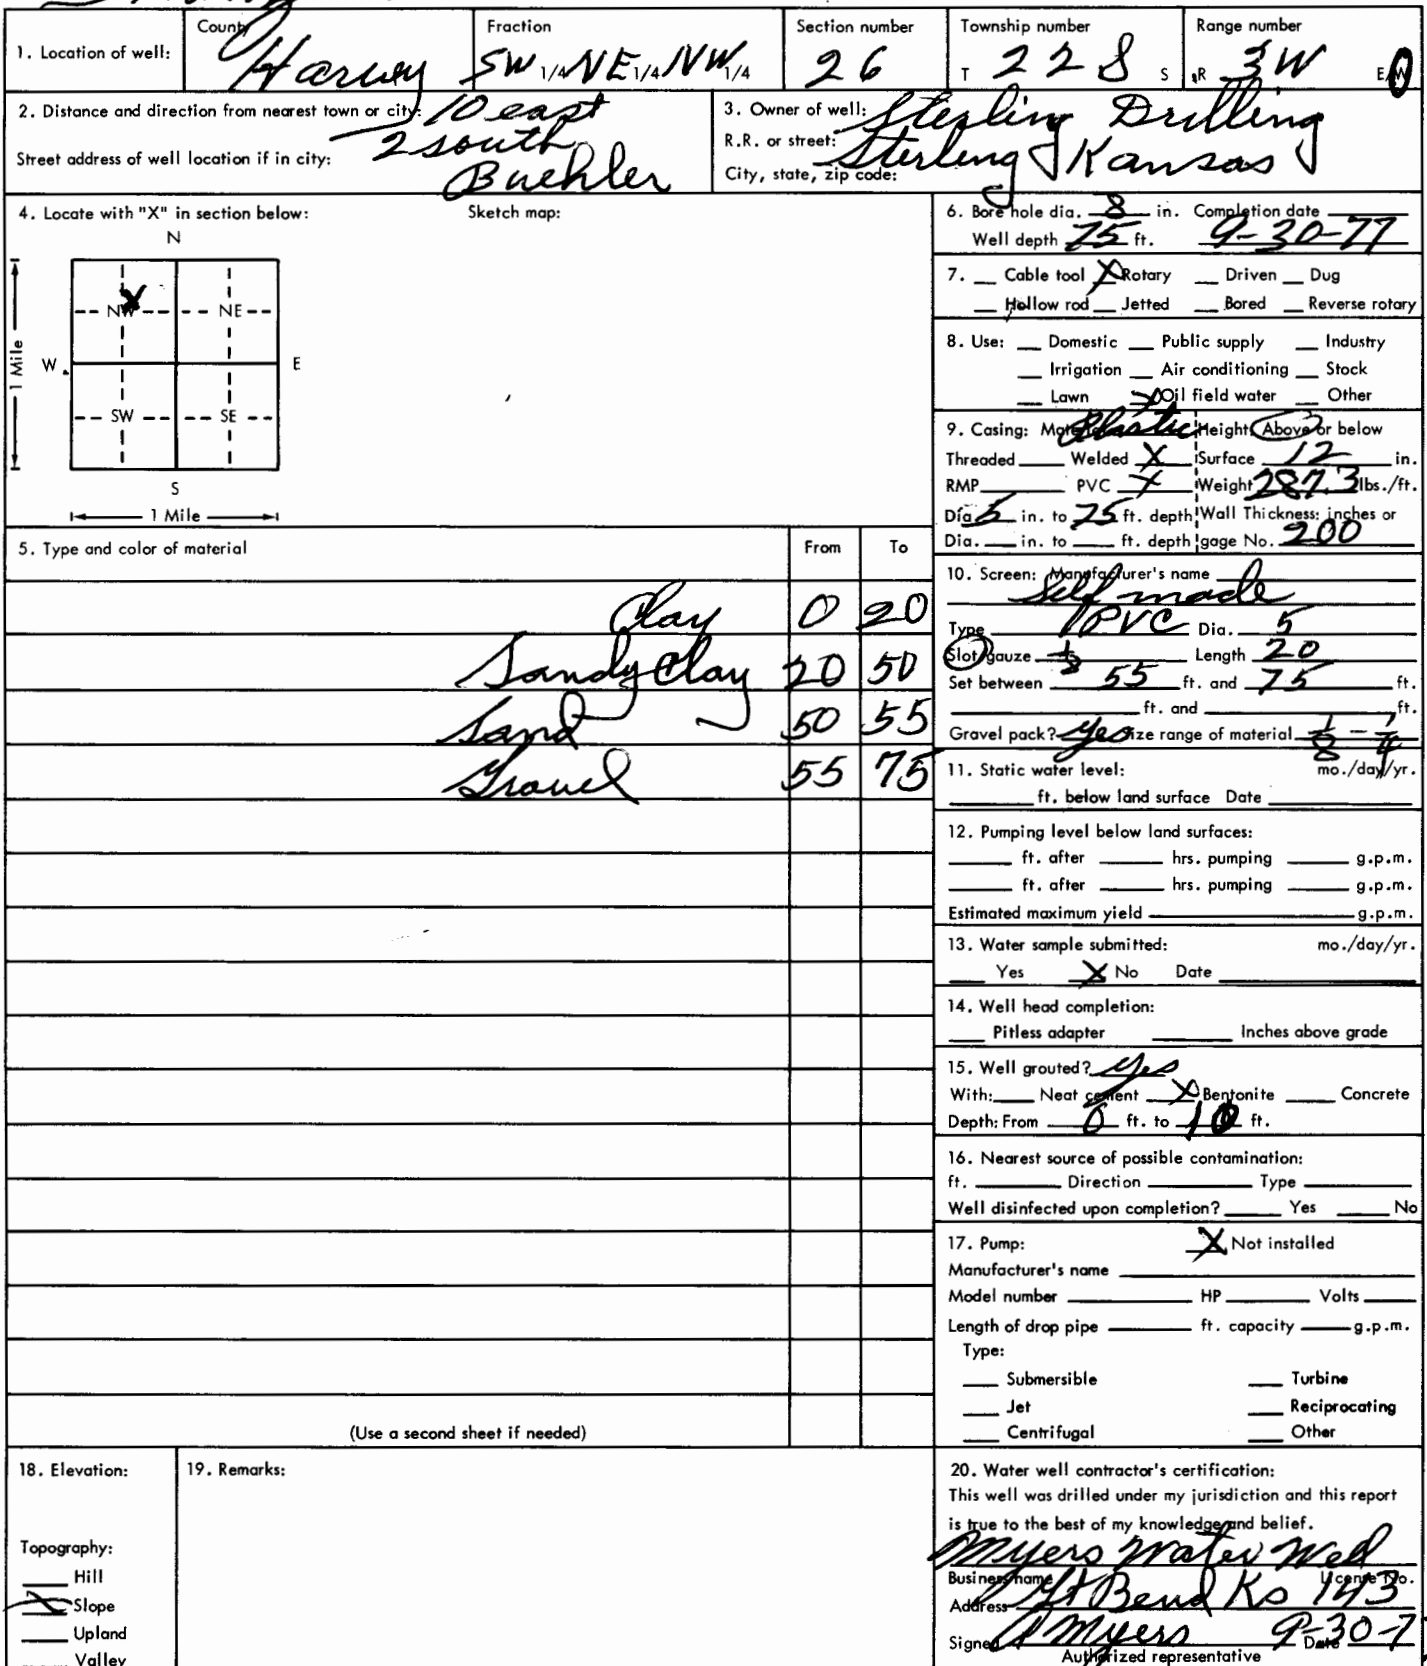 1. Location of well: County Harvey Fraction SW 1/4 NE 1/4 NW 1/4 Section number 26 Township number T 22 S S Range number R 3W E/W
2. Distance and direction from nearest town or city: 10 east
2 south
Street address of well location if in city: Buehler
3. Owner of well: Sterling Drilling
R.R. or street:
City, state, zip code: Sterling Kansas
4. Locate with "X" in section below: Sketch map:
N
X
NW NE
W E
1 Mile
SW SE
S
1 Mile
5. Type and color of material From To
Clay 0 20
Sandy Clay 20 50
Sand 50 55
Gravel 55 75
(Use a second sheet if needed)
6. Bore hole dia. 8 in. Completion date
Well depth 75 ft. 9-30-77
7. Cable tool X Rotary Driven Dug
Hollow rod Jetted Bored Reverse rotary
8. Use: Domestic Public supply Industry
Irrigation Air conditioning Stock
Lawn X Oil field water Other
9. Casing: Material Plastic Height: Above or below
Threaded Welded X Surface 12 in.
RMP PVC X Weight 287.3 lbs./ft.
Dia 5 in. to 75 ft. depth Wall Thickness: inches or
Dia. in. to ft. depth gage No. 200
10. Screen: Manufacturer's name
Self made
Type PVC Dia. 5
Slot/gauze 1/8 Length 20
Set between 55 ft. and 75 ft.
ft. and ft.
Gravel pack? yes Size range of material 1/8 - 1/4
11. Static water level: mo./day/yr.
ft. below land surface Date
12. Pumping level below land surfaces:
ft. after hrs. pumping g.p.m.
ft. after hrs. pumping g.p.m.
Estimated maximum yield g.p.m.
13. Water sample submitted: mo./day/yr.
Yes X No Date
14. Well head completion:
Pitless adapter Inches above grade
15. Well grouted? yes
With: Neat cement X Bentonite Concrete
Depth: From 0 ft. to 10 ft.
16. Nearest source of possible contamination:
ft. Direction Type
Well disinfected upon completion? Yes No
17. Pump: X Not installed
Manufacturer's name
Model number HP Volts
Length of drop pipe ft. capacity g.p.m.
Type:
Submersible Turbine
Jet Reciprocating
Centrifugal Other
18. Elevation:
Topography:
Hill
X Slope
Upland
Valley
19. Remarks:
20. Water well contractor's certification:
This well was drilled under my jurisdiction and this report
is true to the best of my knowledge and belief.
Myers Water Well
Business name License No.
Address Gt Bend Ks 143
Signed Myers Date 9-30-7
Authorized representative